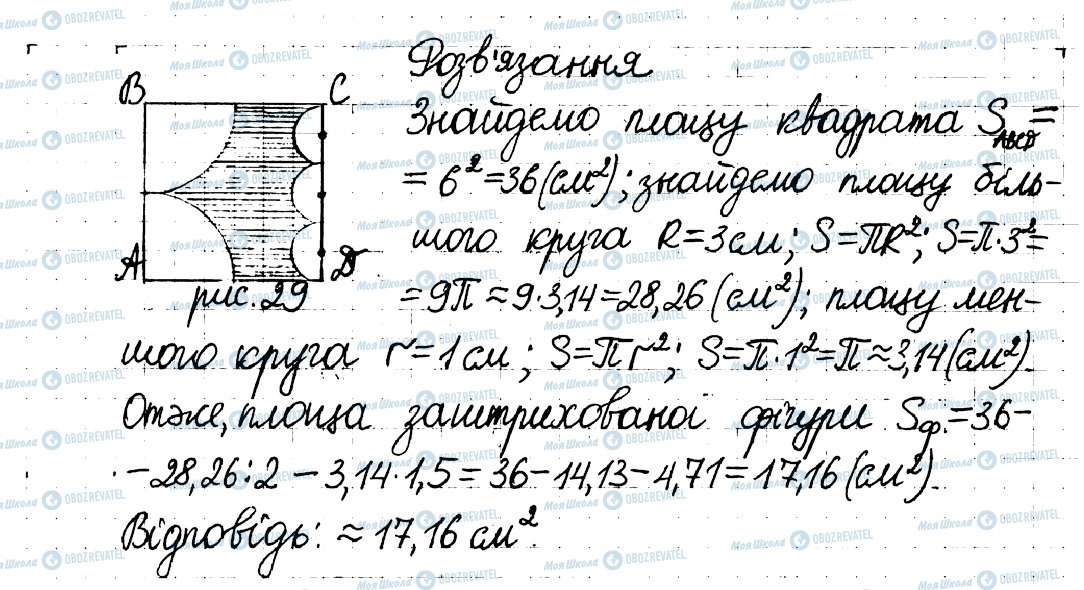 Розв'язання
B C
Знайдемо площу квадрата S_ABCD =
= 6² = 36 (см²); знайдемо площу біль-
шого круга R = 3 см; S = πR²; S = π·3² =
A D
рис. 29
= 9π ≈ 9·3,14 = 28,26 (см²); площу мен-
шого круга r = 1 см; S = πr²; S = π·1² = π ≈ 3,14 (см²).
Отже, площа заштрихованої фігури Sф. = 36 −
− 28,26 : 2 − 3,14·1,5 = 36 − 14,13 − 4,71 = 17,16 (см²).
Відповідь: ≈ 17,16 см².
Моя Школа OBOZREVATEL